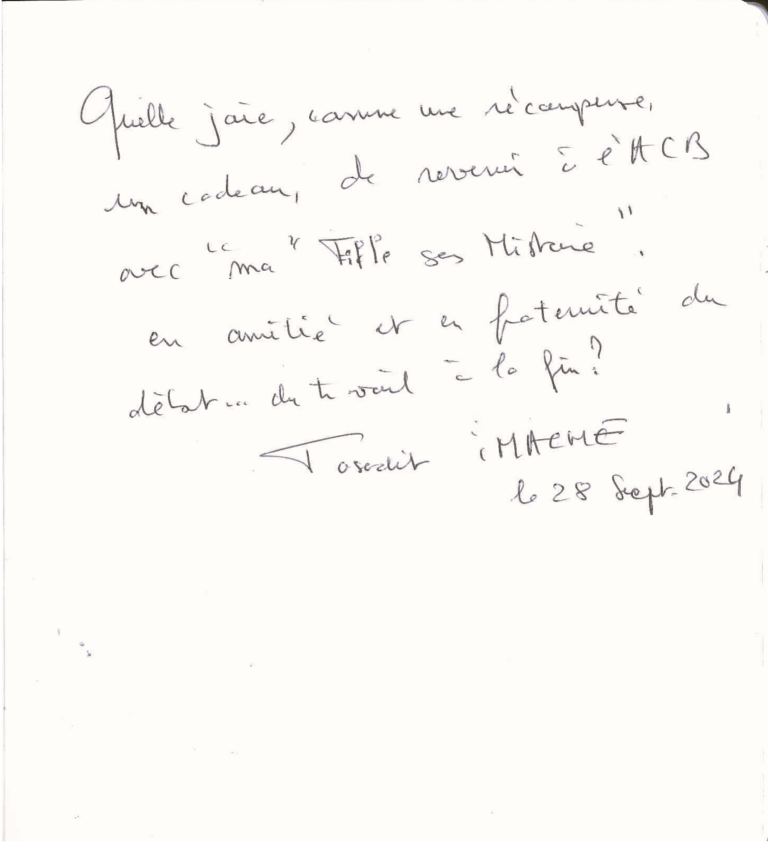 Quelle joie, comme une récompense,
un cadeau, de revenir à l'ACB
avec "ma" Fille ses Histoire".
en amitié et en fraternité du
début... du travail à la fin?
Tassadit IMACHE
le 28 Sept. 2024